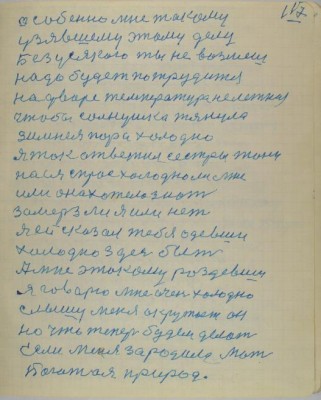 17
особенно мне такому
узявшему этому делу
Без усякого ты не возмеш
надо будет потрудится
на дваре температура не летняя
чтобы солнушка тянула
зимняя пора холодно
я так ответил сестры тоня
нася спрос холодно ли мне
или она хотела знат
замерз ли я или нет
я ей сказал тебя одевши
холодно здеся быт
А мне этакому роздевши
я говарю мне очен холодно
слышу меня окружает он
но что тепер будем делат
Если меня зародила мат
Богатая природ.